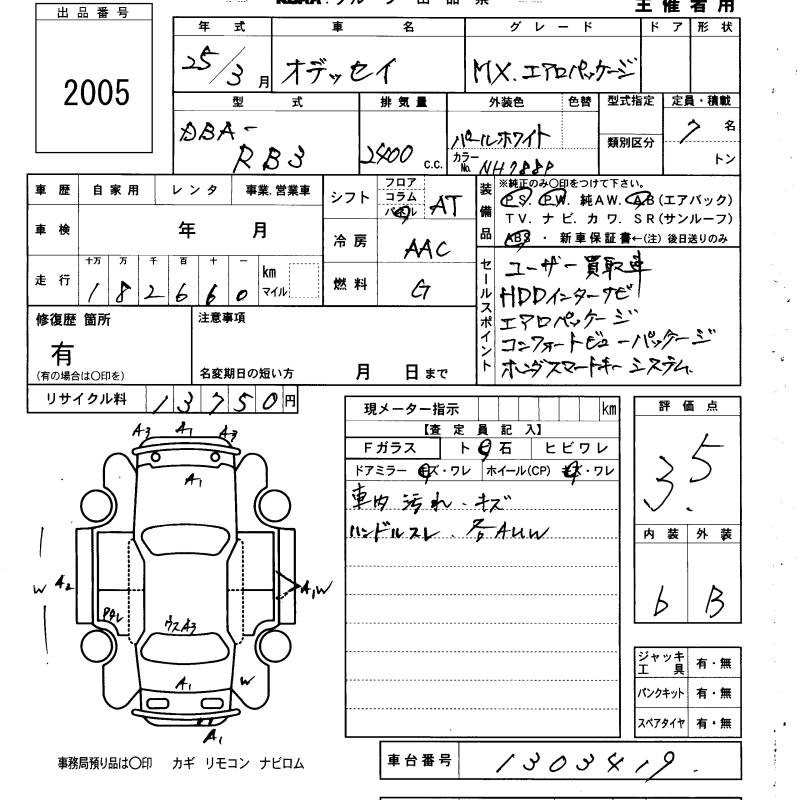 主催者用
出品番号
2005
年式 車名 グレード ドア 形状
25/3月 オデッセイ MX.エアロパッケージ
型式 排気量 外装色 色替 型式指定 定員・積載
DBA-RB3 2400 c.c. パールホワイト 類別区分 7名
カラーNo. NH788P トン
車歴 自家用 レンタ 事業.営業車
車検 年 月
走行 十万 万 千 百 十 一 km マイル
1 8 2 6 6 0
シフト フロア コラム パネル AT
冷房 AAC
燃料 G
装備品 ※純正のみ○印をつけて下さい。
PS. PW. 純AW. AB(エアバック)
TV. ナビ. カワ. SR(サンルーフ)
ABS ・ 新車保証書←(注) 後日送りのみ
セールスポイント
ユーザー買取車
HDDインターナビ
エアロパッケージ
コンフォートビューパッケージ
ホンダスマートキーシステム
修復歴 箇所
有
(有の場合は○印を)
注意事項
名変期日の短い方 月 日まで
リサイクル料 13750円
現メーター指示 km
【査定員記入】
Fガラス ト 石 ヒビワレ
ドアミラー キズ・ワレ ホイール(CP) キズ・ワレ
車内汚れ・キズ
ハンドルスレ . 各AUW
評価点
3.5
内装 外装
b B
ジャッキ工具 有・無
パンクキット 有・無
スペアタイヤ 有・無
A3 A1 A3
A1
W A2 A1W
ウスA3
A1 W
A1
事務局預り品は○印 カギ リモコン ナビロム
車台番号 1303419.